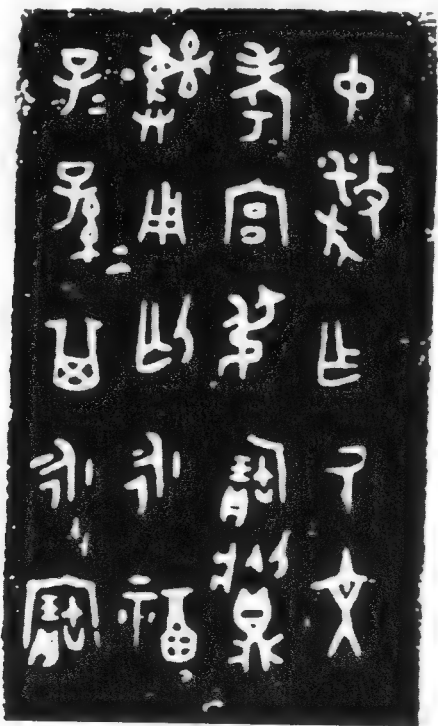 中乍氒文
考宮弔寶彝
彝用匄永福
子二孫二其永寶